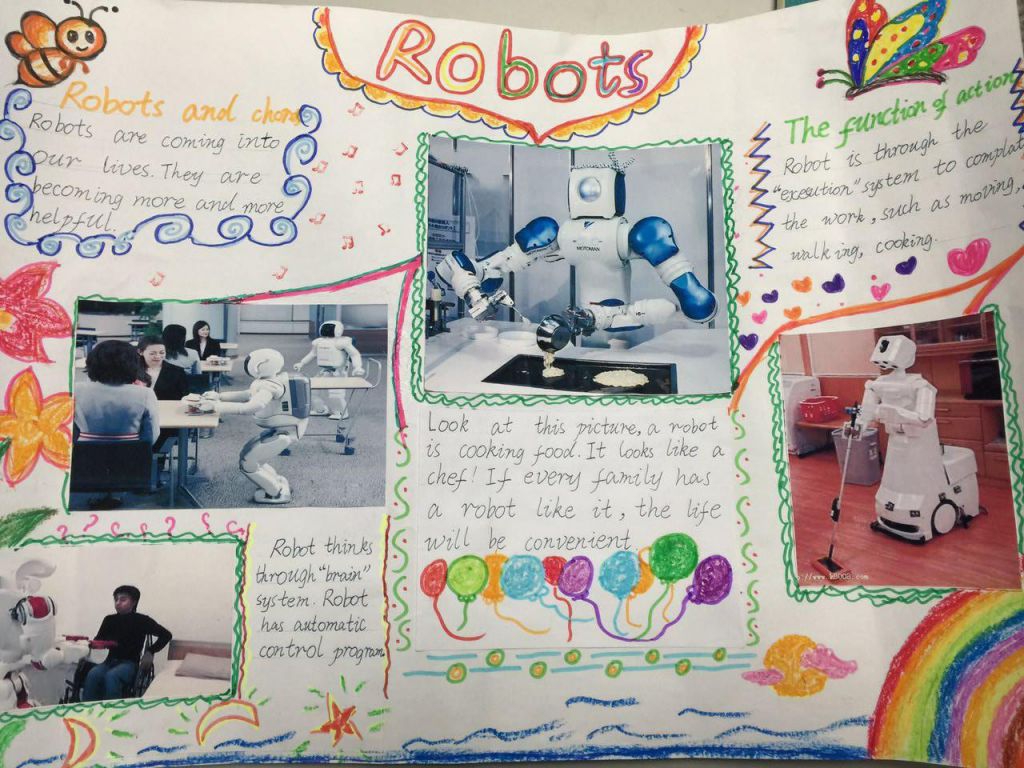 Robots
Robots and chores
Robots are coming into
our lives. They are
becoming more and more
helpful.
The function of action
Robot is through the
"execution" system to complat
the work, such as moving,
walking, cooking.
MOTOMAN
Look at this picture, a robot
is cooking food. It looks like a
chef! If every family has
a robot like it, the life
will be convenient
Robot thinks
through "brain"
system. Robot
has automatic
control program